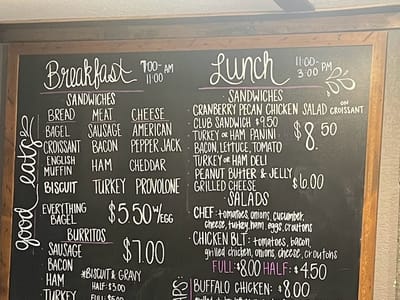 good eats
Breakfast 7:00-AM 11:00
SANDWICHES
BREAD MEAT CHEESE
BAGEL SAUSAGE AMERICAN
CROISSANT BACON PEPPER JACK
ENGLISH MUFFIN HAM CHEDDAR
BISCUIT TURKEY PROVOLONE
EVERYTHING BAGEL $5.50 W/EGG
BURRITOS
SAUSAGE $7.00
BACON
HAM *BISCUIT & GRAVY
HALF: $3.00
TURKEY
Lunch 11:00-3:00 PM
SANDWICHES
CRANBERRY PECAN CHICKEN SALAD ON CROISSANT
CLUB SANDWICH $9.50
TURKEY OR HAM PANINI $8.50
BACON, LETTUCE, TOMATO
TURKEY OR HAM DELI
PEANUT BUTTER & JELLY
GRILLED CHEESE $6.00
SALADS
CHEF: tomatoes, onions, cucumber,
cheese, turkey, ham, eggs, croutons
CHICKEN BLT: tomatoes, bacon,
grilled chicken, onions, cheese, croutons
FULL: $8.00 HALF: $4.50
BUFFALO CHICKEN: $8.00